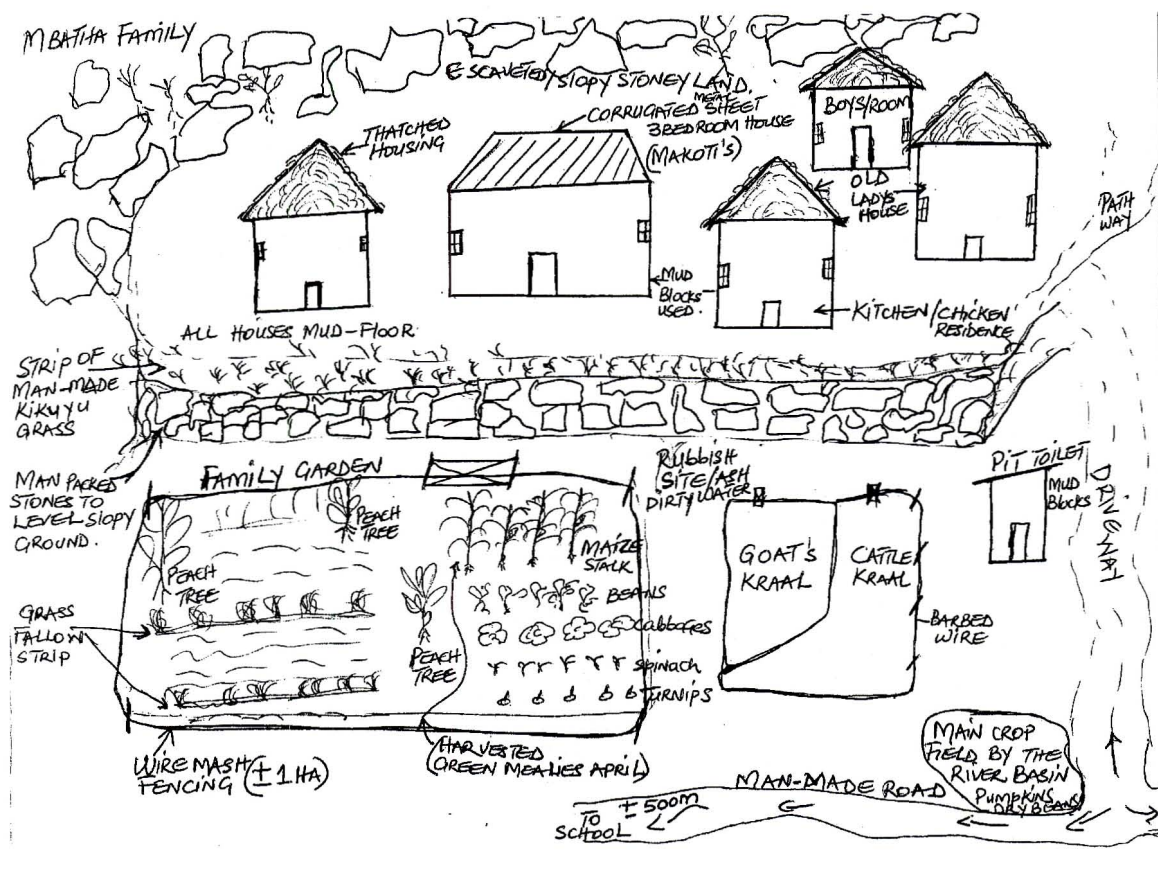 MBATHA FAMILY
ESCAVETED/SLOPY STONEY LAND.
CORRUGATED METAL SHEET
3 BEDROOM HOUSE
(MAKOTI'S)
THATCHED
HOUSING
BOYS/ROOM
OLD
LADYS
HOUSE
PATH
WAY
MUD
BLOCKS
USED.
KITCHEN/CHICKEN
RESIDENCE
ALL HOUSES MUD-FLOOR
STRIP OF
MAN-MADE
KIKUYU
GRASS
MAN PACKED
STONES TO
LEVEL SLOPY
GROUND.
FAMILY GARDEN
RUBBISH
SITE/ASH
DIRTY WATER
PIT TOILET
MUD
BLOCKS
DRIVEWAY
PEACH
TREE
PEACH
TREE
MAIZE
STALK
GOAT'S
KRAAL
CATTLE
KRAAL
BEANS
Cabbages
GRASS
FALLOW
STRIP
PEACH
TREE
BARBED
WIRE
Spinach
TURNIPS
WIRE MASH
FENCING (± 1 HA)
(HARVESTED
GREEN MEALIES APRIL)
MAIN CROP
FIELD BY THE
RIVER BASIN
PUMPKINS
DRY BEANS
MAN-MADE ROAD
± 500m
TO
SCHOOL